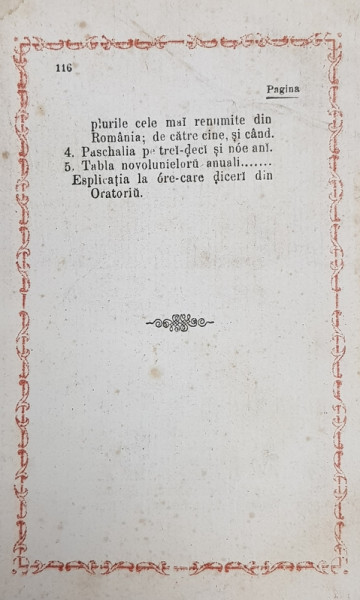 116
Pagina
plurile cele maĭ renumite din
România; de cătrĕ cine, și când.
4. Paschalia pe treĭ-decĭ și nóe anĭ.
5. Tabla novolunielorŭ anuali.......
Esplicația la óre-care ḑicerĭ din
Oratoriŭ.